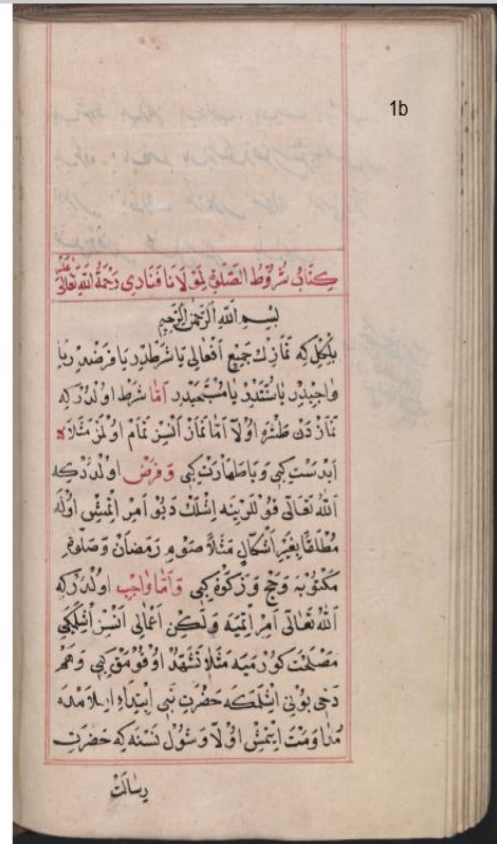 1b
كتاب شروط الصلوة لمولانا فنادى رحمة الله تعالى عليه
بسم الله الرحمن الرحيم
بلكل كه نمازك جميع افعالى يا شرطدر يا فرضدر يا
واجبدر يا سنتدر يا مستحبدر اما شرط اولدر كه
نمازدن طشره اولا اما نماز انسز تمام اولمز مثلا
ابدست كبى و يا طهارت كبى و فرض اولدر كه
الله تعالى قوللرينه اشلك ديو امر اتمش اوله
مطلقا بغير اشكال مثلا صوم رمضان و صلوة
مكتوبه و حج و زكوة كبى و اما واجب اولدر كه
الله تعالى امر اتميه ولكن اعمالى انسز اشلمكى
مصلحت كورميه مثلا تشهد اوقومق كبى و هم
دخى بونى اشلمكه حضرت نبى ابتداء اسلامده
مداومت ايتمش اولا و شول نسنه كه حضرت
رسالت